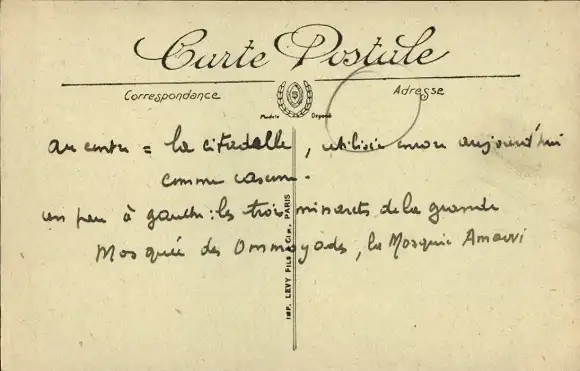 Carte Postale
Correspondance
Adresse
Modèle Déposé
au centre = la citadelle, utilisée encore aujourd'hui
comme caserne.
un peu à gauche : les trois minarets de la grande
Mosquée des Ommeyades, la Mosquée Amawi
IMP. LEVY FILS & CIE. PARIS